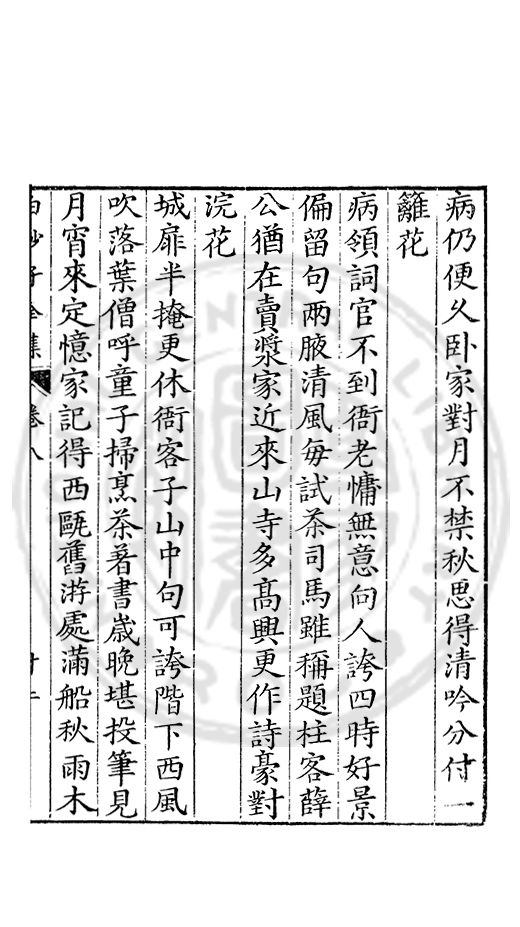 病仍便久卧家對月不禁秋思得清吟分付一
籬花
病領詞官不到衙老慵無意向人誇四時好景
偏留句兩腋清風每試茶司馬雖稱題柱客薛
公猶在賣漿家近來山寺多高興更作詩豪對
浣花
城扉半掩更休衙客子山中句可誇階下西風
吹落葉僧呼童子掃烹茶著書歲晚堪投筆見
月宵來定憶家記得西甌舊游處滿船秋雨木